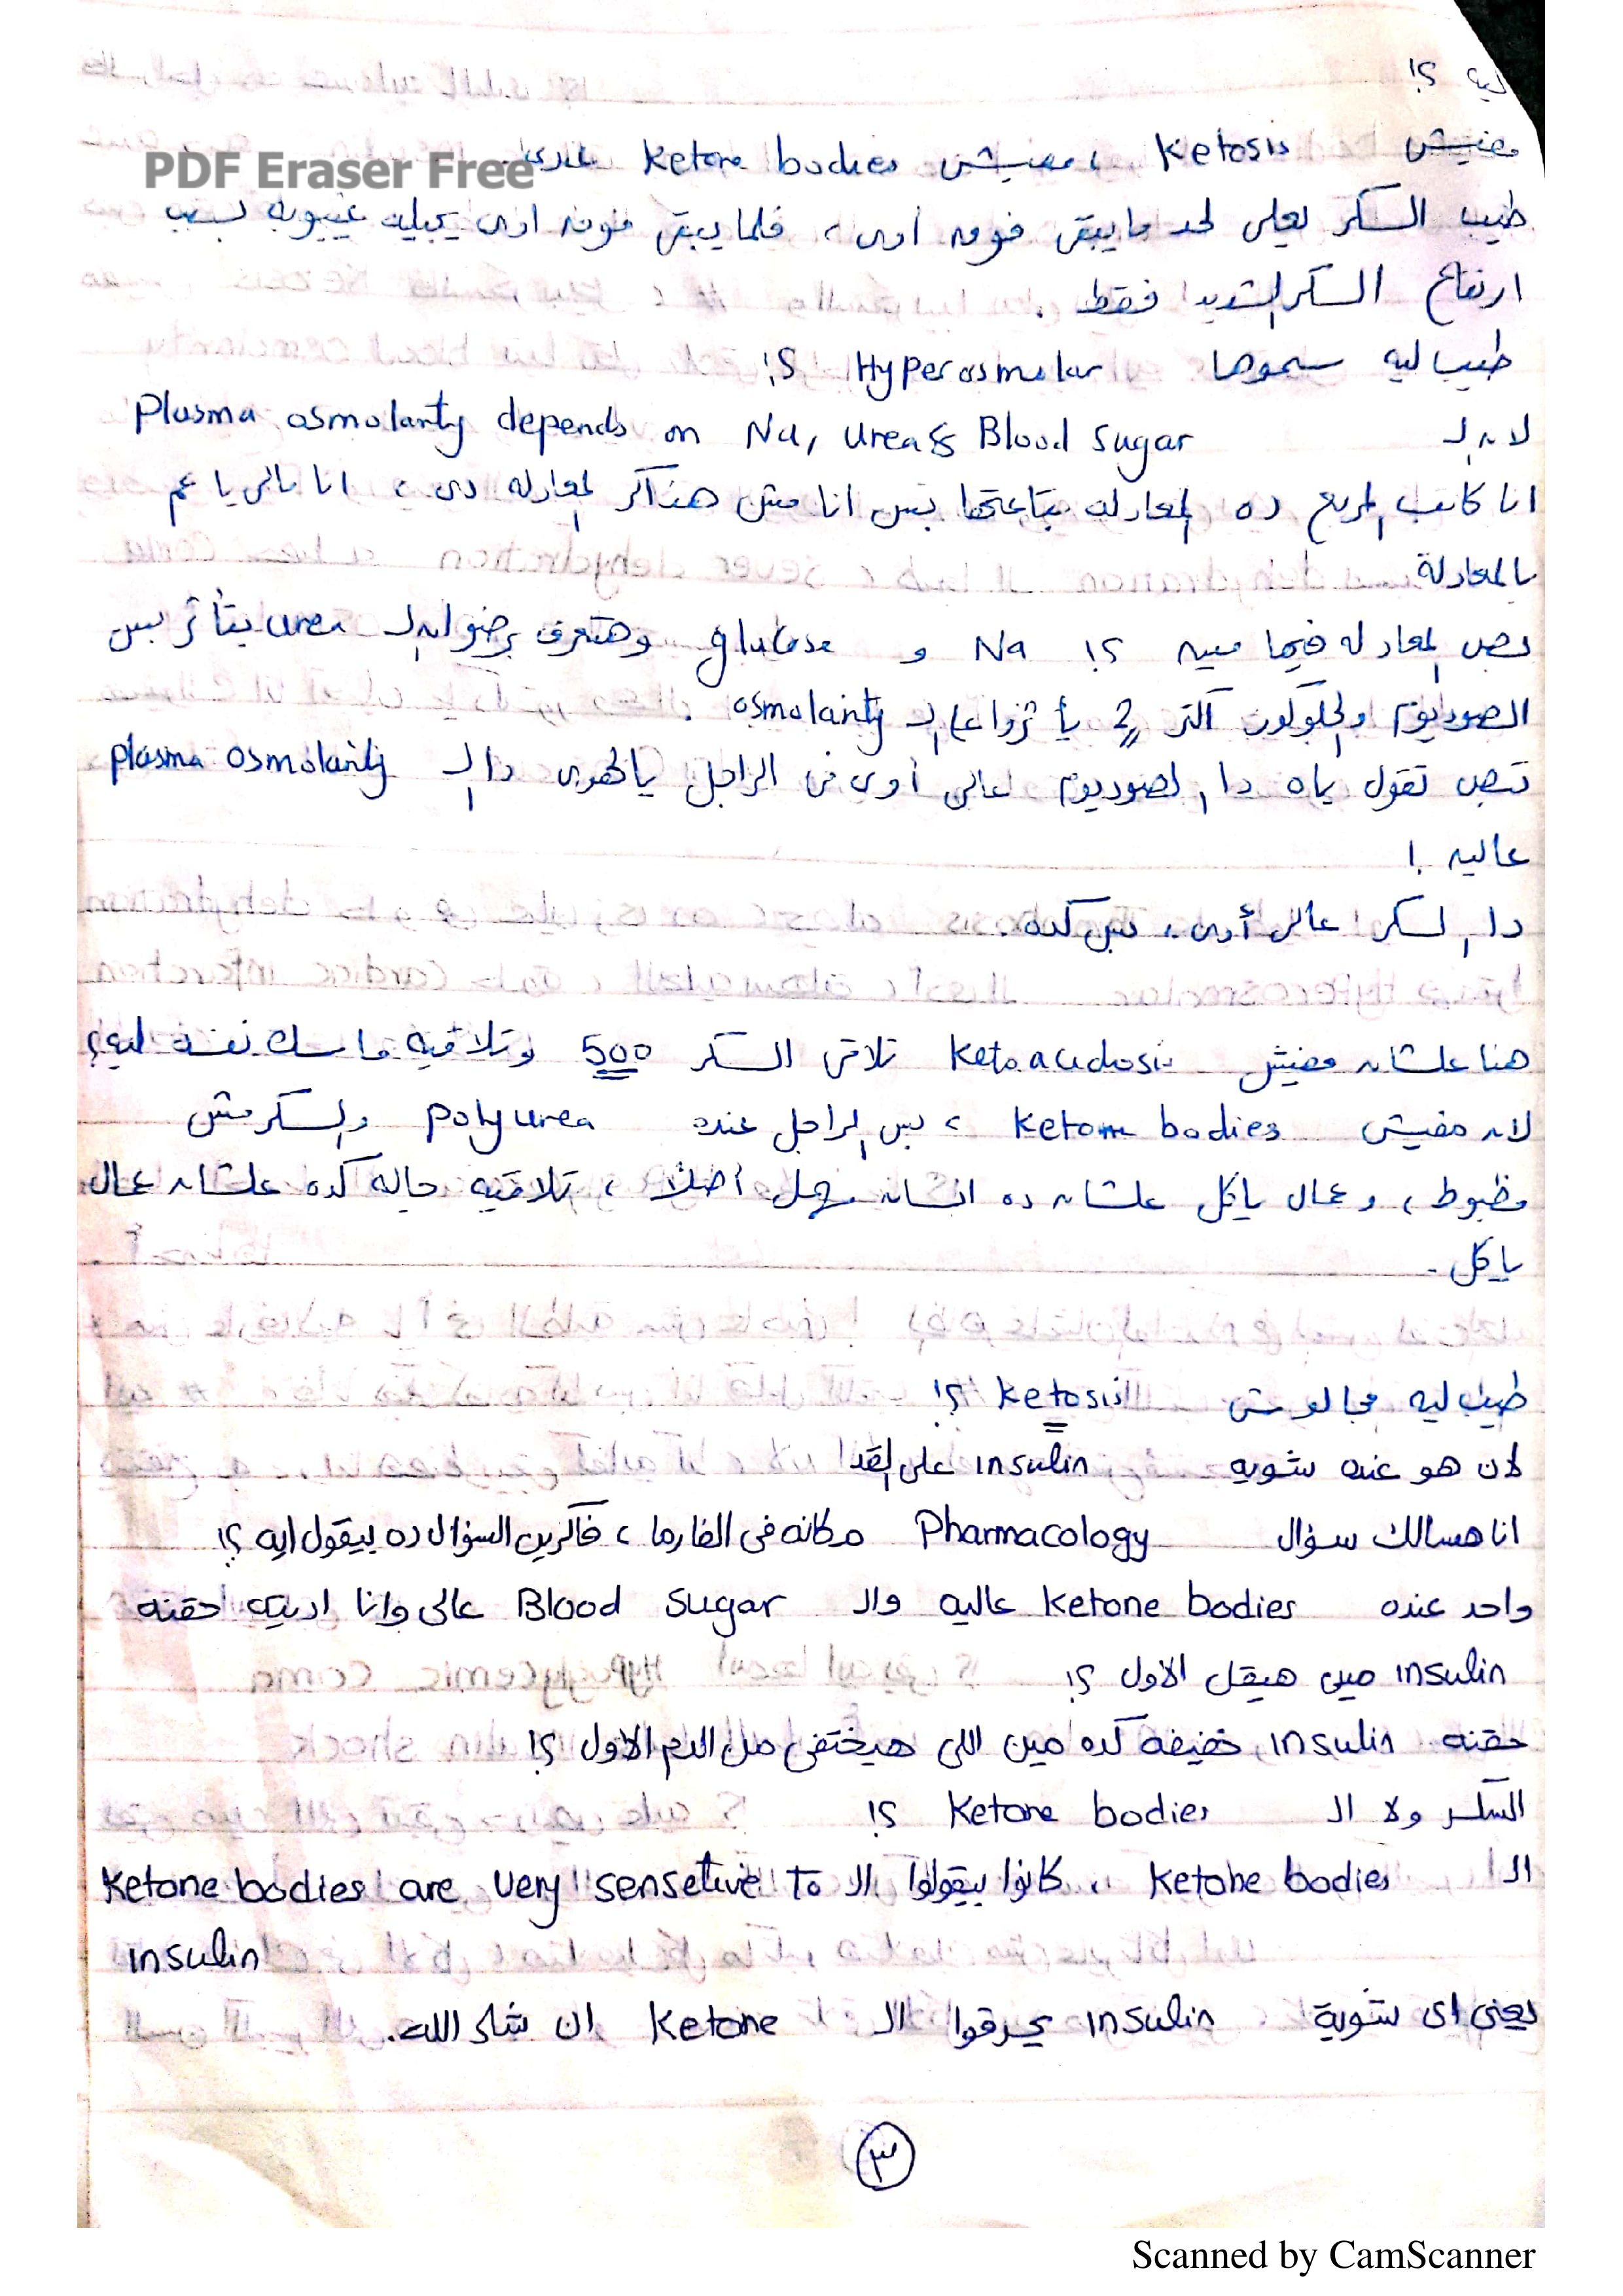 ليه ؟!
PDF Eraser Free
مفيش Ketosis ، مفيش Ketone bodies عادى
طيب السكر يعلى لحد ما يبقى فوق أوى ، فلما يبقى فوق اوى يجيله غيبوبة بسبب
ارتفاع السكر الشديد فقط .
طيب ليه سموها Hyperosmolar ؟!
لان الـ Plasma osmolarity depends on Na, urea & Blood sugar
انا كاتب المربع ده المعادله بتاعتها بس انا مش هذاكر المعادله دى ، انا مالى يا عم
بالمعادلة
بص المعادله فيها مين ؟! Na و glucose وهتعرف برضوا ان الـ urea بيتأثر بس
الصوديوم والجلوكوز اكتر 2 يأثروا على الـ osmolarity .
تبص تقول ياه دا الصوديوم عالى أوى فى الراجل يالهوى دا الـ plasma osmolarity
عاليه !
دا السكر عالى أوى ، بس كده .
هنا علشان مفيش Ketoacidosis تلاقى السكر 500 وتلاقيه ماسك نفسه ليه؟
لان مفيش Ketone bodies ، بس الراجل عنده polyurea والسكر مش
مظبوط ، وعمال ياكل علشان ده انسان مهمل أصلًا ، تلاقيه جاله كده علشان عمال
ياكل .
طيب ليه مجالوش الـ Ketosis ؟!
لان هو عنده شويه insulin على القد
انا هسالك سؤال Pharmacology مكانه فى الفارما ، فاكرين السؤال ده بيقول ايه ؟!
واحد عنده Ketone bodies عاليه والـ Blood sugar عالى وانا اديته حقنه
insulin مين هيقل الاول ؟!
حقنه insulin خفيفه كده مين اللى هيختفى من الدم الاول ؟!
السكر ولا الـ Ketone bodies ؟!
الـ Ketone bodies ، كانوا بيقولوا الـ Ketone bodies are very sensetive to
insulin
يعنى اى شوية insulin يحرقوا الـ Ketone ان شاء الله.
٣
Scanned by CamScanner